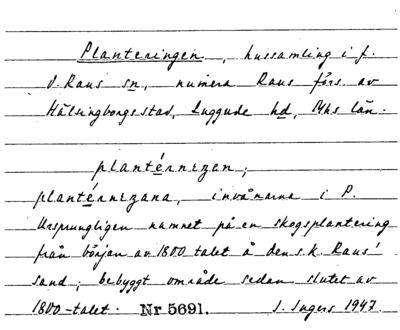 Planteringen, hussamling i f.
d. Raus sn, numera Raus förs. av
Hälsingborgs stad, Luggude hd, Mhs län.
plantérningen;
plantérningana, invånarna i P.
Ursprungligen namnet på en skogsplantering
från början av 1800 talet å den s.k. Raus'
sand; bebyggt område sedan slutet av
1800-talet. Nr 5691. I. Ingers 1947.